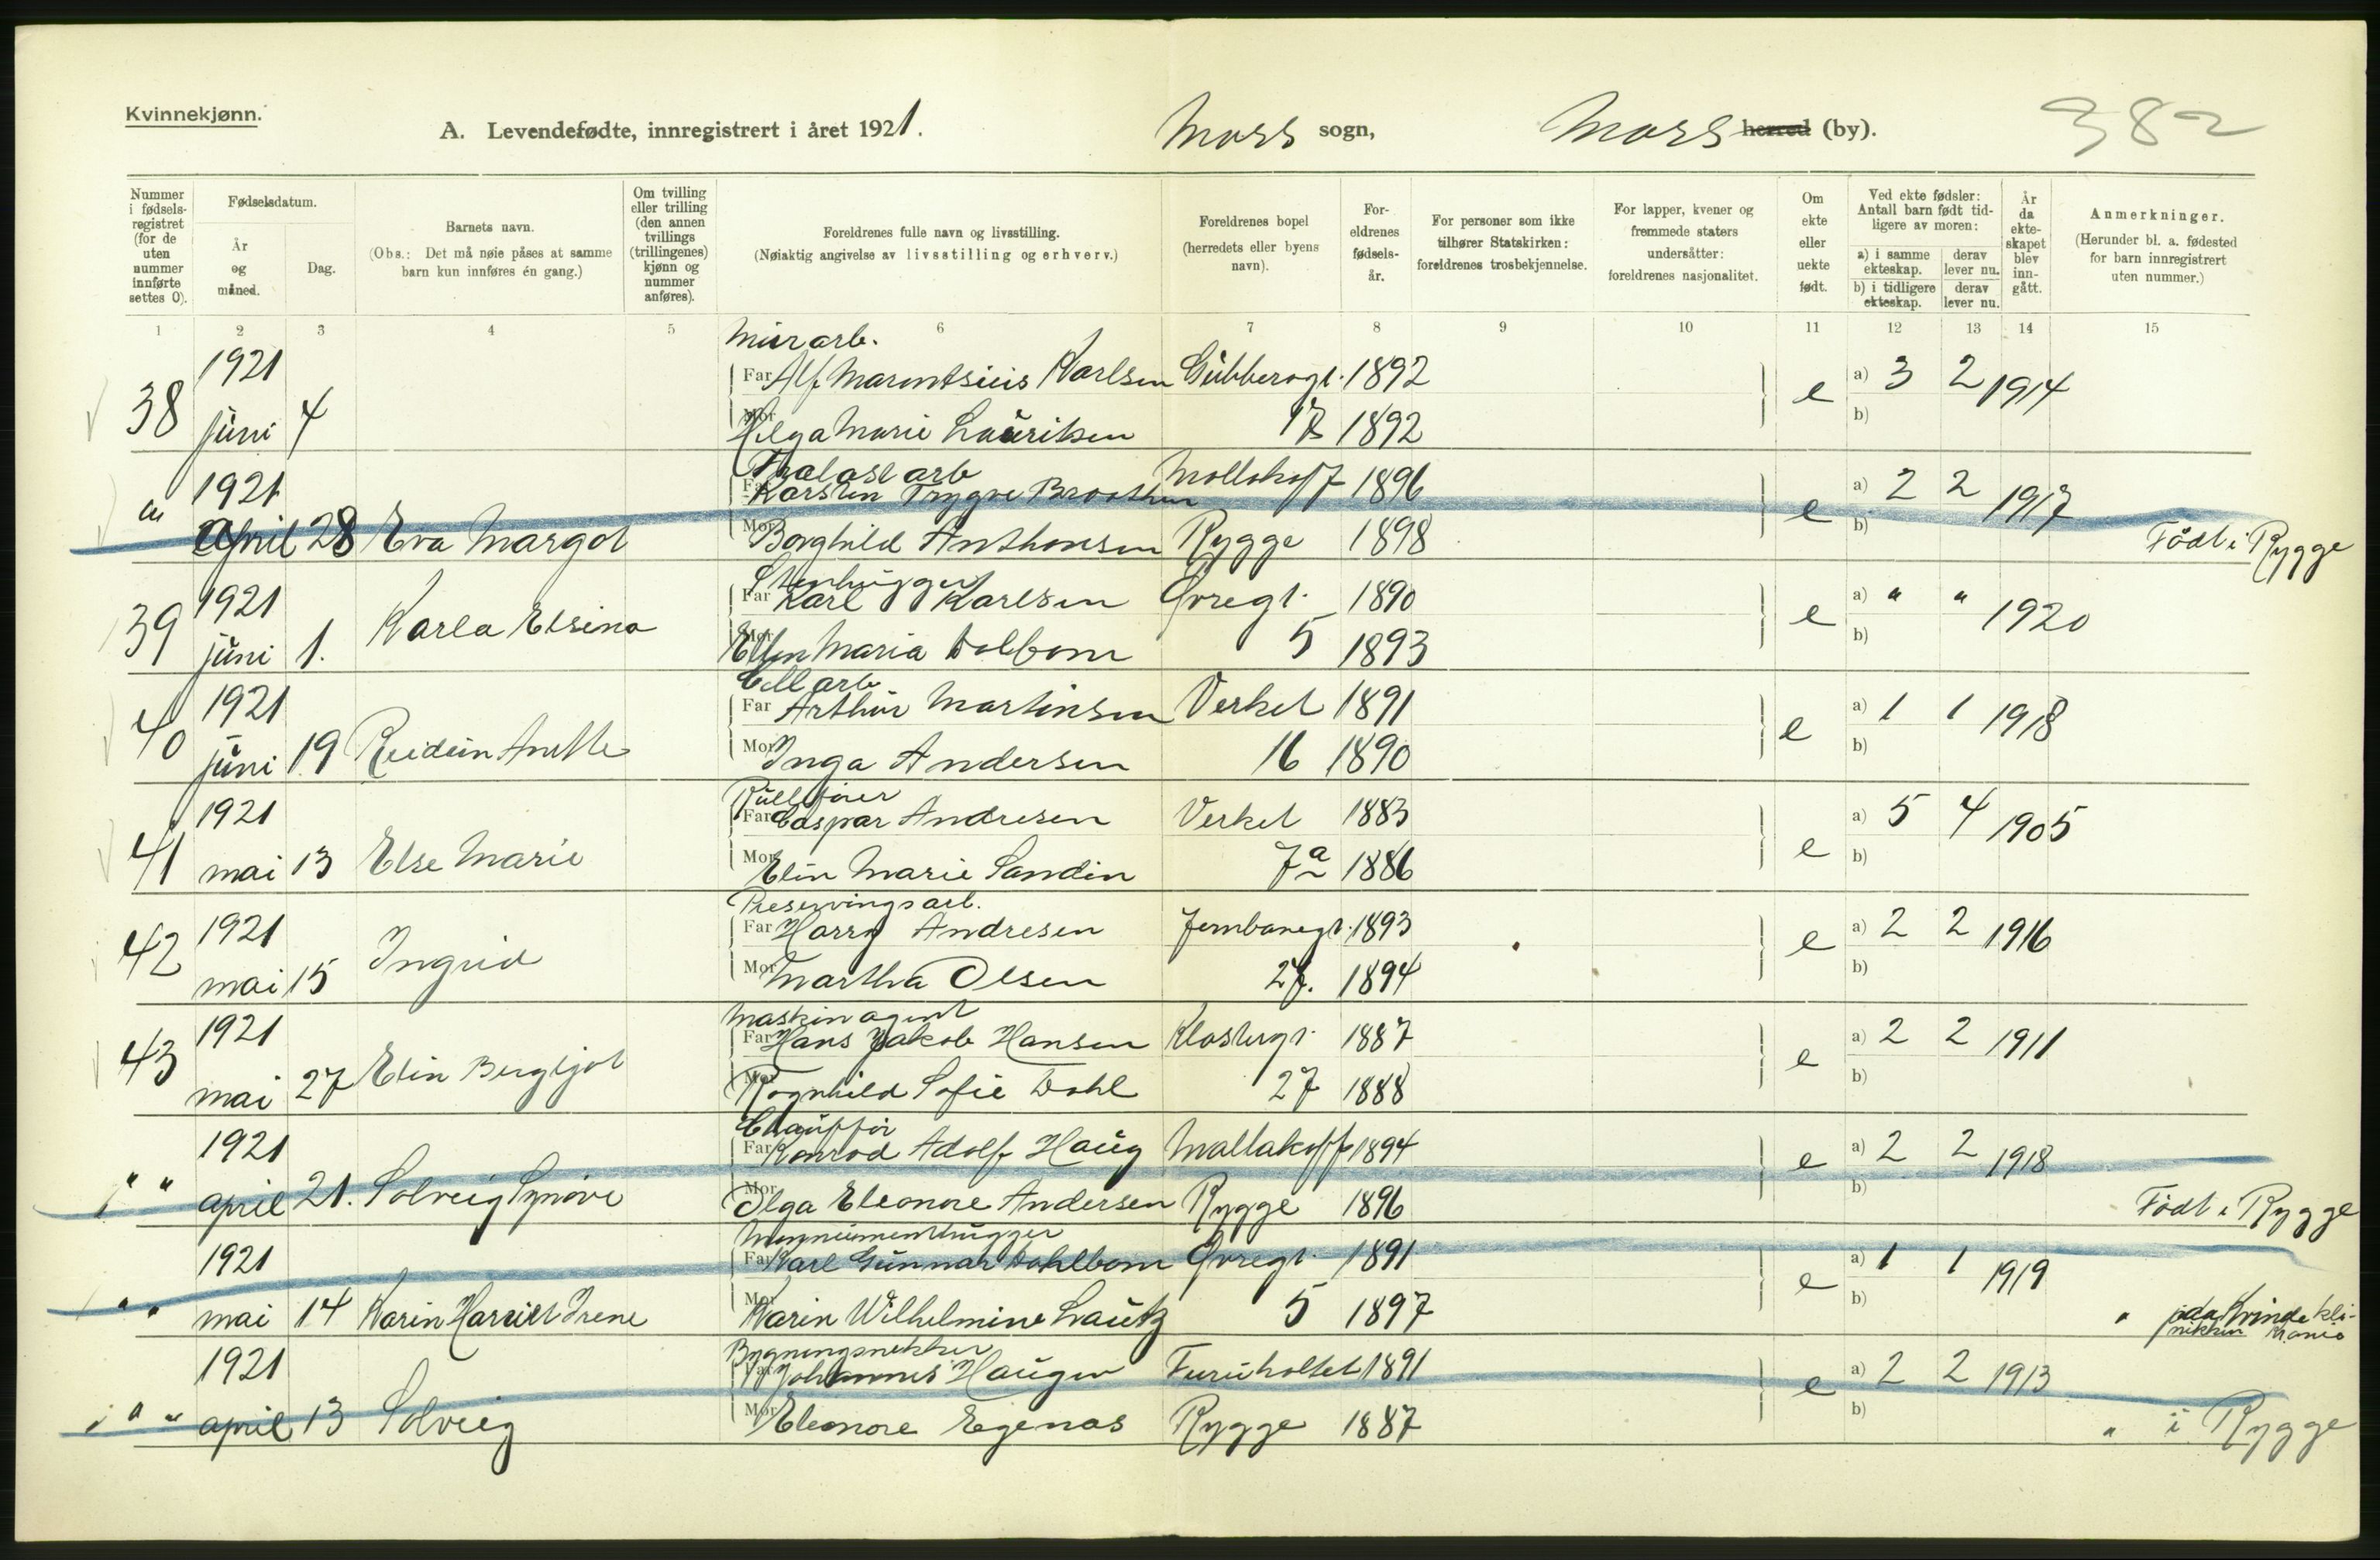 Kvinnekjønn.
A. Levendefødte, innregistrert i året 1921.
Moss sogn,
Moss herred (by).
382
Nummer i fødsels-registret (for de uten nummer innførte settes 0).
Fødselsdatum.
År og måned.
Dag.
Barnets navn.
(Obs.: Det må nøie påses at samme barn kun innføres én gang.)
Om tvilling eller trilling (den annen tvillings (trillingenes) kjønn og nummer anføres).
Foreldrenes fulle navn og livsstilling.
(Nøiaktig angivelse av livsstilling og erhverv.)
Foreldrenes bopel (herredets eller byens navn).
For-eldrenes fødsels-år.
For personer som ikke tilhører Statskirken: foreldrenes trosbekjennelse.
For lapper, kvener og fremmede staters undersåtter: foreldrenes nasjonalitet.
Om ekte eller uekte født.
Ved ekte fødsler: Antall barn født tid-ligere av moren:
a) i samme ekteskap. derav lever nu.
b) i tidligere ekteskap. derav lever nu.
År da ekte-skapet blev inn-gått.
Anmerkninger.
(Herunder bl. a. fødested for barn innregistrert uten nummer.)
1 2 3 4 5 6 7 8 9 10 11 12 13 14 15
Murarb.
1921 Far Alf Karlsen 1892 a) 3 2 1914
38 juni 4 Mor Helga Marie Lauritsen 17 1892 e b)
1921 Far Karsten Trygve 1896 a) 2 2 1917
" april 28 Eva Margot Mor Borghild Anthonsen Rygge 1898 e b) Født i Rygge
Stenhugger
1921 Far Karl Karlsen Øvregt. 1890 a) " " 1920
39 juni 1. Karla Elsina Mor Ellen Maria Dolbom 5 1893 e b)
Cell arb
1921 Far Arthur Martinsen Verket 1891 a) 1 1 1918
40 juni 19 Reidun Mor Inga Andersen 16 1890 e b)
1921 Far Caspar Andresen Verket 1883 a) 5 4 1905
41 mai 13 Else Marie Mor Elin Marie Sandin 7a 1886 e b)
Preservingsarb.
1921 Far Harry Andresen Jernbanegt. 1893 a) 2 2 1916
42 mai 15 Ingrid Mor Martha Olsen 27. 1894 e b)
Maskinagent
1921 Far Hans Jakob Hansen Klostergt. 1887 a) 2 2 1911
43 mai 27 Elin Bergljot Mor Ragnhild Sofie Dahl 27 1888 e b)
Chauffør
1921 Far Konrad Adolf Haug Mallakoff 1894 a) 2 2 1918
" " april 21. Solveig Synøve Mor Olga Eleonore Andersen Rygge 1896 e b) Født i Rygge
1921 Far Karl Gunnar Dahlbom Øvregt. 1891 a) 1 1 1919
" " mai 14 Karin Harriet Irene Mor Karin Wilhelmine Lautz 5 1897 e b) " Kvindekli-nikken
1921 Far Johannes Haugen Furuholtet 1891 a) 2 2 1913
" " april 13 Solveig Mor Eleonore Egenas Rygge 1887 e b) " i Rygge